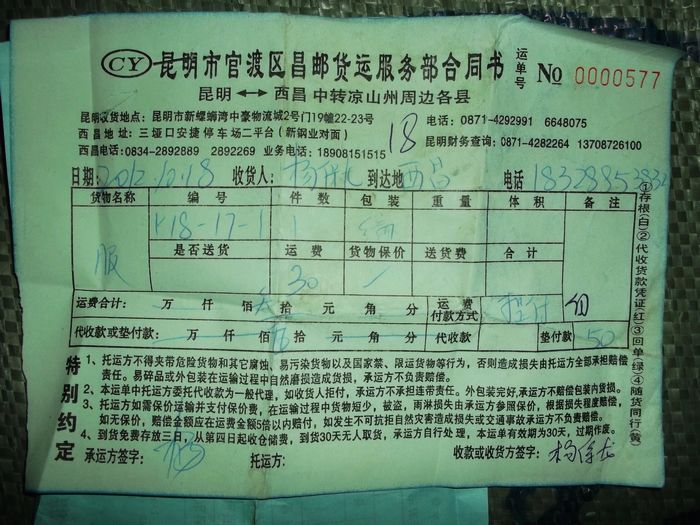 CY 昆明市官渡区昌邮货运服务部合同书 运单号 No 0000577
昆明 ←→ 西昌 中转凉山州周边各县
昆明收货地点：昆明市新螺蛳湾中豪物流城2号门19幢22-23号 电话：0871-4292991 6648075
西昌地址：三垭口安捷停车场二平台（新钢业对面） 18 昆明财务查询：0871-4282264 13708726100
西昌电话：0834-2892889 2892269 业务电话：18908151515
日期：2012.10.18 收货人：杨 到达地 西昌 电话
货物名称 编号 件数 包装 重量 体积 备注
服 K18-17-1 1
是否送货 运费 货物保价 送货费 合计
30 /
运费合计： 万 仟 佰 叁拾 元 角 分 运费付款方式
代收款或垫付款： 万 仟 佰 伍拾 元 角 分 代收款 垫付款 50
①存根(白)②代收货款凭证(红)③回单(绿)④随货同行(黄)
特别约定
1、托运方不得夹带危险货物和其它腐蚀、易污染货物以及国家禁、限运货物等行为，否则造成损失由托运方全部承担赔偿
责任。易碎品或外包装在运输过程中自然磨损造成货损，承运方不负责赔偿。
2、本运单中托运方委托代收款为一般代理，如收货人拒付，承运方不承担连带责任。外包装完好，承运方不赔偿包装内货损。
3、托运方如需保价运输并支付保价费，在运输过程中货物短少，被盗，雨淋损失由承运方参照保价，根据损失程度赔偿，
如无保价，赔偿应在运费金额5倍以内赔付，如发生不可抗拒自然灾害造成损或交通事故承运方不负责赔偿。
4、到货免费存放三日，从第四日起收仓储费，到货30天无人取货，承运方自行处理，本运单有效期为30天，过期作废。
承运方签字：杨 托运方： 收款或收货方签字：杨